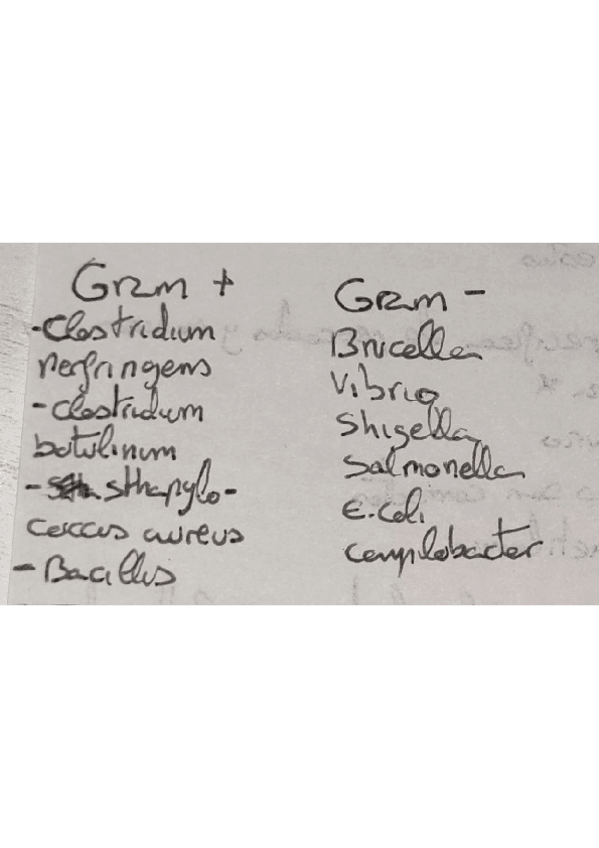 Gram +
-Clostridium
perfringens
-clostridum
botulinum
- sthapylo-
coccus aureus
- Bacillus
Gram -
Brucella
Vibrio
Shigella
Salmonella
E.coli
campilobacter